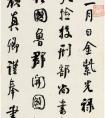 一月日金紫光祿
檢校刑部尚書
國魯郡開國
真卿謹奉書